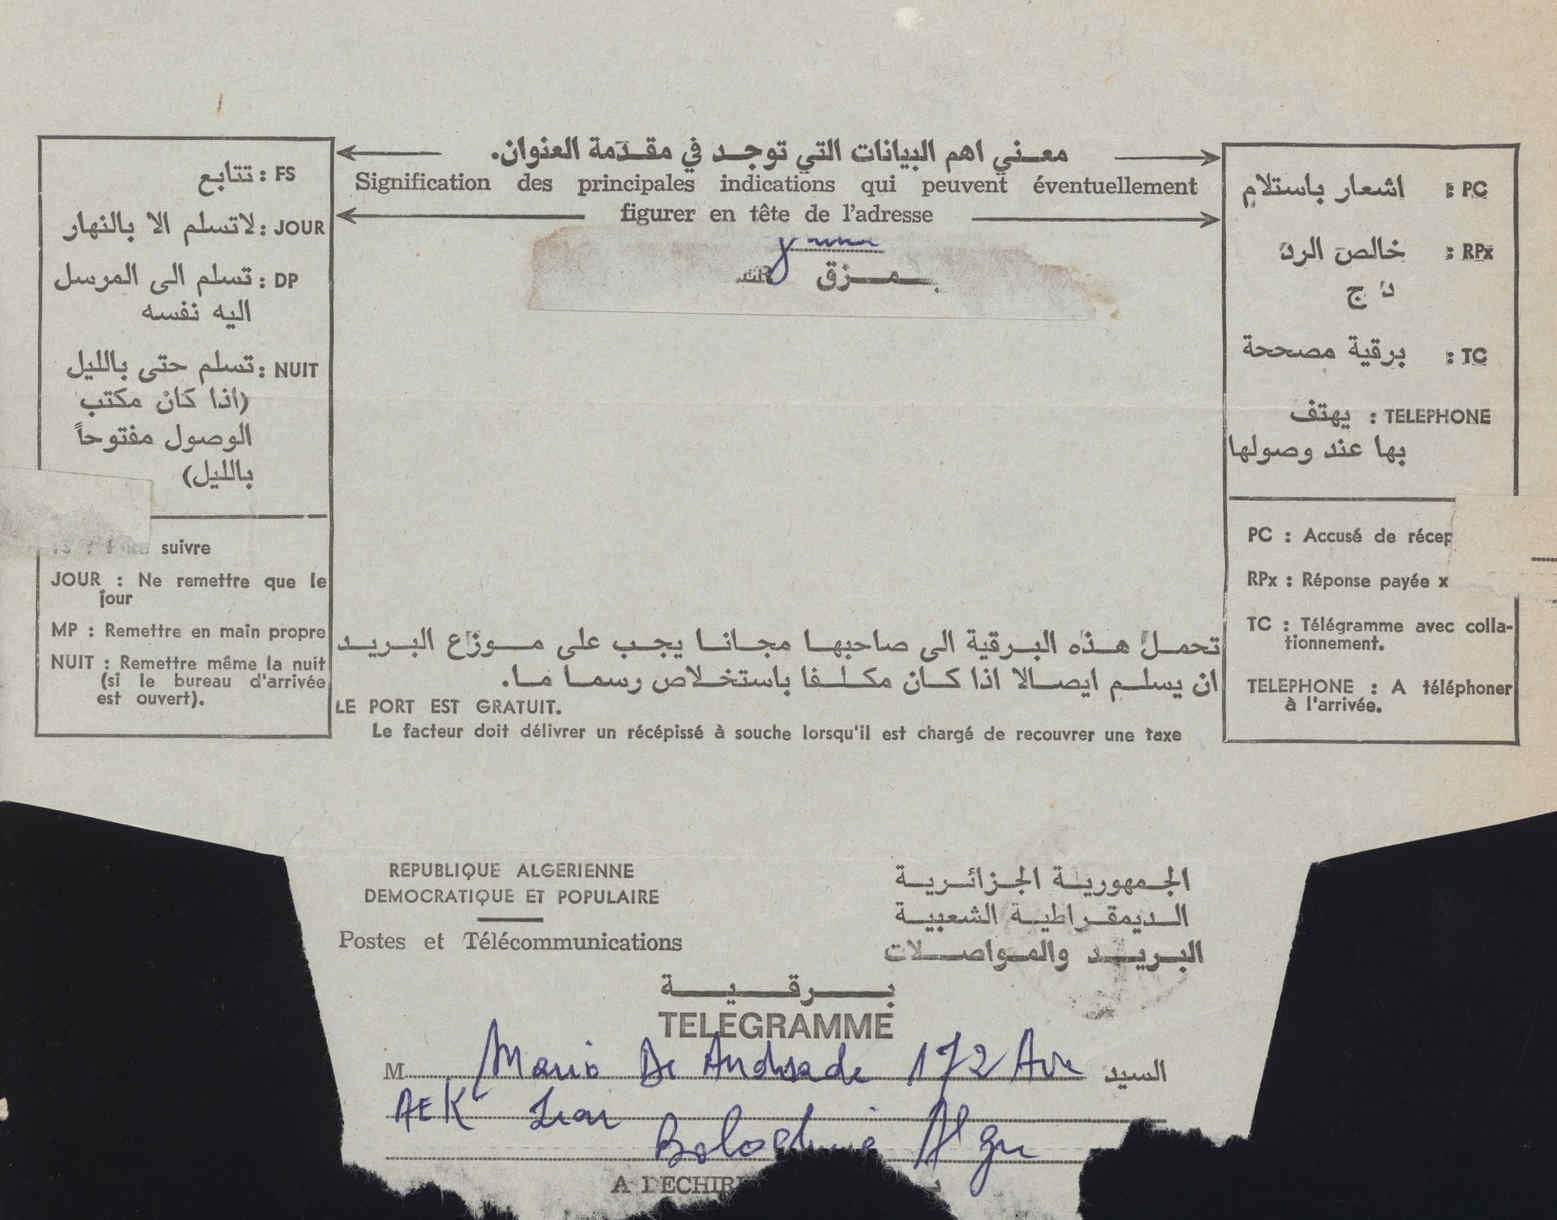 معـنـي اهم البيانات التي توجـد في مقـدّمة العنوان.
Signification des principales indications qui peuvent éventuellement
figurer en tête de l'adresse
FS : تتابع
JOUR : لاتسلم الا بالنهار
DP : تسلم الى المرسل
اليه نفسه
NUIT : تسلم حتى بالليل
(اذا كان مكتب
الوصول مفتوحاً
بالليل)
suivre
JOUR : Ne remettre que le
jour
MP : Remettre en main propre
NUIT : Remettre même la nuit
(si le bureau d'arrivée
est ouvert).
يـمـزق
PC : اشعار باستلام
RPx : خالص الردّ
د ج
TC : برقية مصححة
TELEPHONE : يهتف
بها عند وصولها
PC : Accusé de récep
RPx : Réponse payée x
TC : Télégramme avec colla-
tionnement.
TELEPHONE : A téléphoner
à l'arrivée.
تحمـلّ هـذه البـرقية الى صاحبهـا مجـانـا يجـب على مـوزّاع البـريـد
ان يسلـم ايصـالا اذا كـان مكلـفا باستخـلاص رسمـا مـا.
LE PORT EST GRATUIT.
Le facteur doit délivrer un récépissé à souche lorsqu'il est chargé de recouvrer une taxe
REPUBLIQUE ALGERIENNE
DEMOCRATIQUE ET POPULAIRE
Postes et Télécommunications
الجـمهوريـة الجـزائـريـة
الـديمقـراطيـة الشعبيـة
البـريـد والمـواصـلات
بـرقـيـة
TELEGRAMME
M Mario De Andrade 172 Ave السيد
AEK
Bologhine Alger
A DECHIR